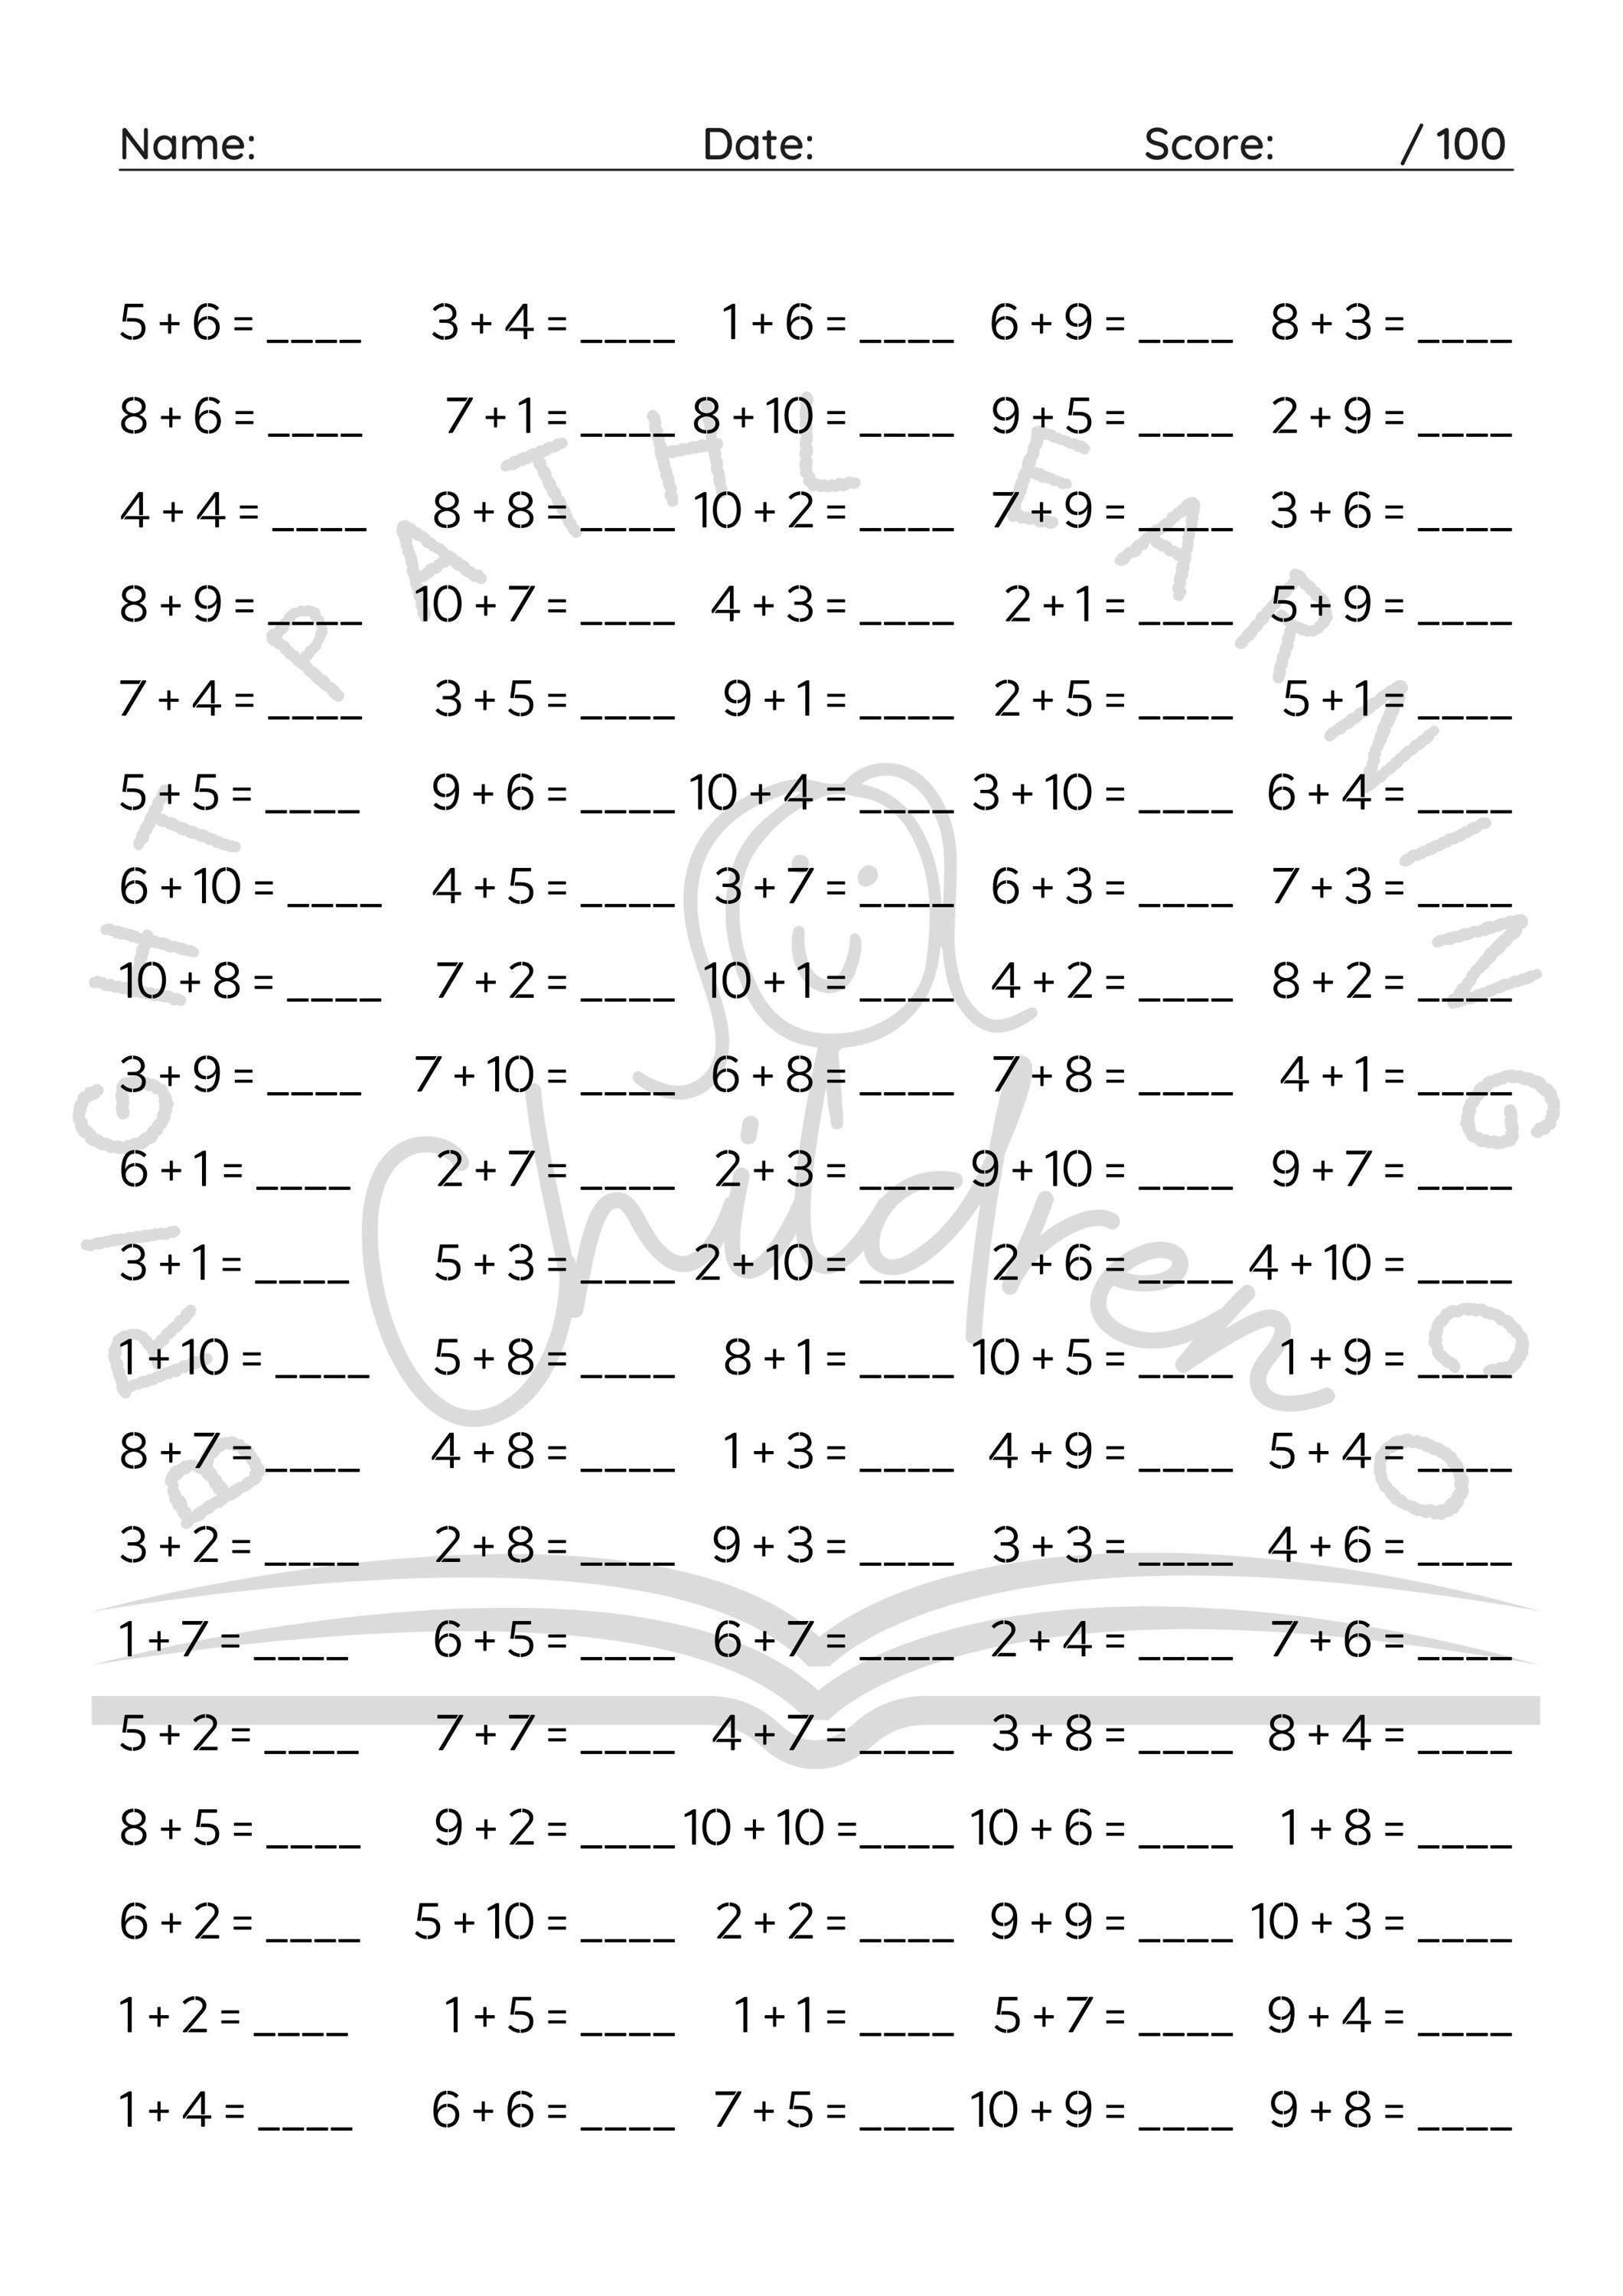 Name: Date: Score: / 100
5 + 6 = ____ 3 + 4 = ____ 1 + 6 = ____ 6 + 9 = ____ 8 + 3 = ____
8 + 6 = ____ 7 + 1 = ____ 8 + 10 = ____ 9 + 5 = ____ 2 + 9 = ____
4 + 4 = ____ 8 + 8 = ____ 10 + 2 = ____ 7 + 9 = ____ 3 + 6 = ____
8 + 9 = ____ 10 + 7 = ____ 4 + 3 = ____ 2 + 1 = ____ 5 + 9 = ____
7 + 4 = ____ 3 + 5 = ____ 9 + 1 = ____ 2 + 5 = ____ 5 + 1 = ____
5 + 5 = ____ 9 + 6 = ____ 10 + 4 = ____ 3 + 10 = ____ 6 + 4 = ____
6 + 10 = ____ 4 + 5 = ____ 3 + 7 = ____ 6 + 3 = ____ 7 + 3 = ____
10 + 8 = ____ 7 + 2 = ____ 10 + 1 = ____ 4 + 2 = ____ 8 + 2 = ____
3 + 9 = ____ 7 + 10 = ____ 6 + 8 = ____ 7 + 8 = ____ 4 + 1 = ____
6 + 1 = ____ 2 + 7 = ____ 2 + 3 = ____ 9 + 10 = ____ 9 + 7 = ____
3 + 1 = ____ 5 + 3 = ____ 2 + 10 = ____ 2 + 6 = ____ 4 + 10 = ____
1 + 10 = ____ 5 + 8 = ____ 8 + 1 = ____ 10 + 5 = ____ 1 + 9 = ____
8 + 7 = ____ 4 + 8 = ____ 1 + 3 = ____ 4 + 9 = ____ 5 + 4 = ____
3 + 2 = ____ 2 + 8 = ____ 9 + 3 = ____ 3 + 3 = ____ 4 + 6 = ____
1 + 7 = ____ 6 + 5 = ____ 6 + 7 = ____ 2 + 4 = ____ 7 + 6 = ____
5 + 2 = ____ 7 + 7 = ____ 4 + 7 = ____ 3 + 8 = ____ 8 + 4 = ____
8 + 5 = ____ 9 + 2 = ____ 10 + 10 =____ 10 + 6 = ____ 1 + 8 = ____
6 + 2 = ____ 5 + 10 = ____ 2 + 2 = ____ 9 + 9 = ____ 10 + 3 = ____
1 + 2 = ____ 1 + 5 = ____ 1 + 1 = ____ 5 + 7 = ____ 9 + 4 = ____
1 + 4 = ____ 6 + 6 = ____ 7 + 5 = ____ 10 + 9 = ____ 9 + 8 = ____
BRIGHT PATH LEARNING CO
Children